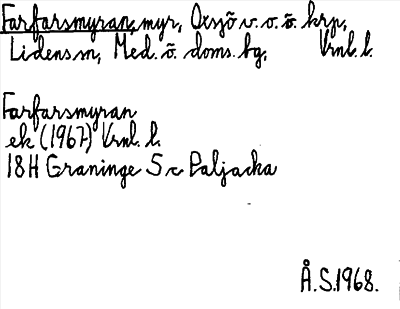 Farfarsmyran, myr, Oxsjö v. o. ö. krp,
Lidens sn, Med. ö. doms. bg, Vrnl. l.
Farfarsmyran
ek (1967) Vrnl. l.
18H Graninge 5 c Paljacka
Å.S.1968.